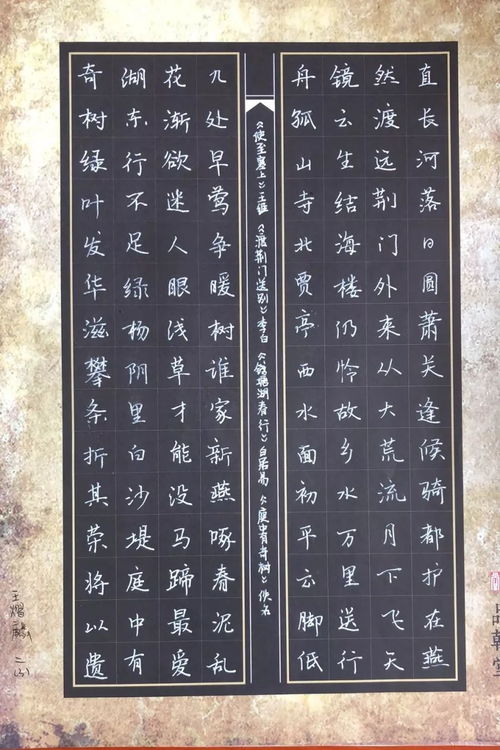 直长河落日圆萧关逢候骑都护在燕
然渡远荆门外来从大荒流月下飞天
镜云生结海楼仍怜故乡水万里送行
舟孤山寺北贾亭西水面初平云脚低
《使至塞上》王维《渡荆门送别》李白《钱塘湖春行》白居易《庭中有奇树》佚名
几处早莺争暖树谁家新燕啄春泥乱
花渐欲迷人眼浅草才能没马蹄最爱
湖东行不足绿杨阴里白沙堤庭中有
奇树绿叶发华滋攀条折其荣将以遗
王熠麟